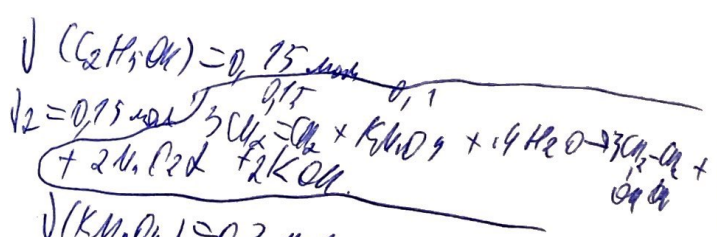 ν(C₂H₅OH)=0,15 моль
0,15 0,1
ν₂=0,15 моль 3CH₂=CH₂ + KMnO₄ + 4H₂O → 3CH₂-CH₂ +
OH OH
+ 2MnO₂↓ + 2KOH
ν(KMnO₄)=0,2